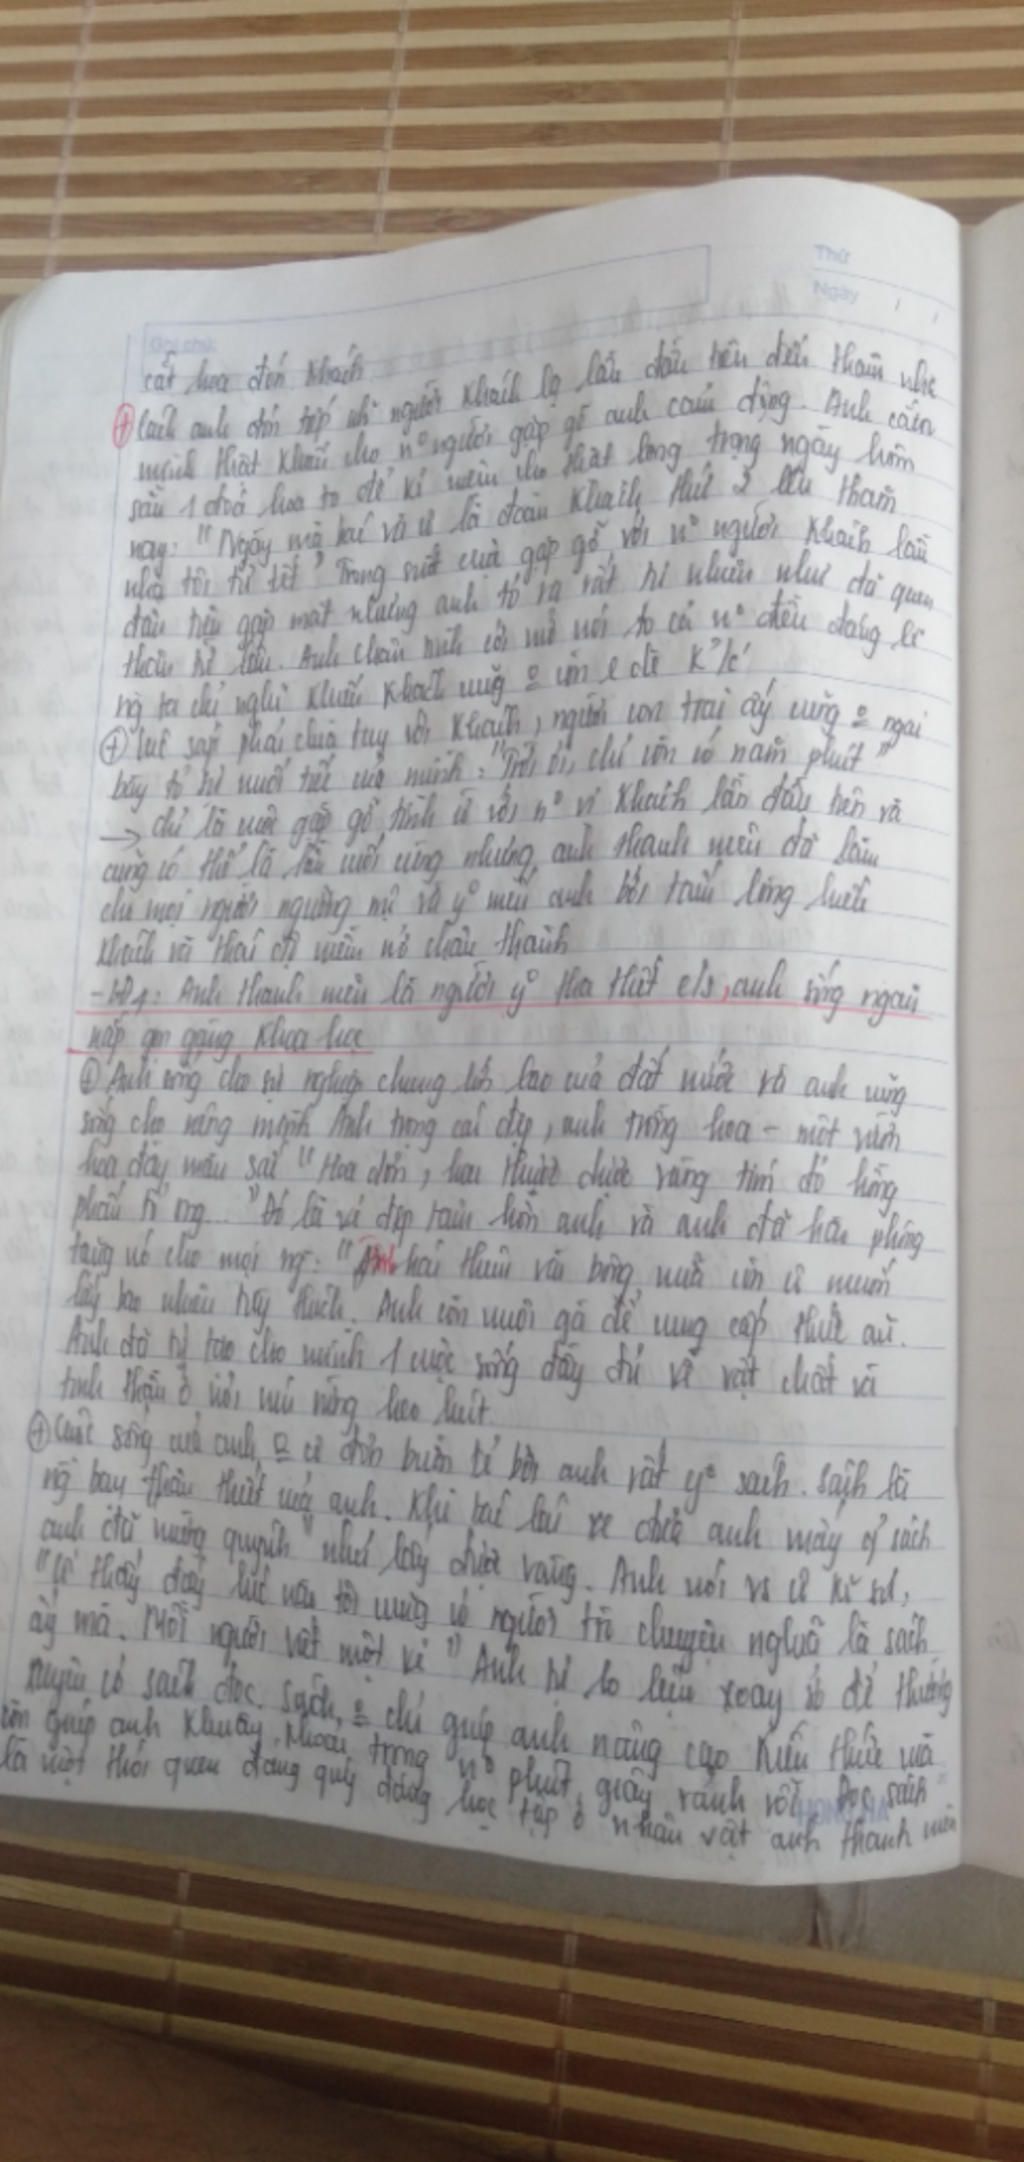 Thứ
Ngày
Ghi chú:
cắt hoa đón khách
⊕ Cách anh đón tiếp nh° người khách lạ lần đầu tiên đến thăm nhà
mình thật khiến cho n° người gặp gỡ anh cảm động. Anh cắm
sẵn 1 đoá hoa to để kỉ niệm cho thật long trọng ngày hôm
nay: "Ngày mà bác và cô là đoàn khách thứ 2 lên thăm
nhà tôi từ tết" Trong suốt cuộc gặp gỡ với n° người khách lần
đầu tiên gặp mặt nhưng anh tỏ ra rất tự nhiên như đã quen
thân từ lâu. Anh chân tình cởi mở nói to cả n° điều đáng lẽ
ng ta chỉ nghĩ
⊕ lúc sắp phải chia tay với khách, người con trai ấy cũng ngại
bày tỏ sự nuối tiếc của mình: "Trời ơi, chỉ còn có năm phút"
→ chỉ là cuộc gặp gỡ tình cờ với n° vị khách lần đầu tiên và
cũng có thể là lần cuối cùng nhưng anh thanh niên đã làm
cho mọi người ngưỡng mộ và y° mến anh bởi tấm lòng hiếu
khách và thái độ niềm nở chân thành
Anh thanh niên là người y° tha thiết c/s, anh sống ngăn
nắp gọn gàng khoa học
⊕ Anh sống cho sự nghiệp chung lớn lao của đất nước và anh cũng
sống cho riêng mình. Anh trọng cái đẹp, anh trồng hoa - một vườn
hoa đầy màu sắc "Hoa dơn, hoa thược dược vàng tím đỏ hồng
phấn tổ ong..." Đó là vẻ đẹp tâm hồn anh và anh đã hào phóng
tặng nó cho mọi ng: "Anh hái thêm vài bông nữa còn cô muốn
lấy bao nhiêu tùy thích. Anh còn nuôi gà để cung cấp thức ăn.
Anh đã tự tạo cho mình 1 cuộc sống đầy đủ về vật chất và
tinh thần ở nơi núi rừng heo hút.
⊕ Cuộc sống của anh cô đơn buồn tẻ bởi anh rất y° sách. Sách là
ng bạn thân thiết của anh. Khi bác lái xe đưa anh mấy q' sách
anh đã mừng quýnh "như bắt được vàng. Anh nói vs cô kĩ sư,
"Cô thấy đấy lúc nào tôi cũng có người trò chuyện nghĩa là sách
ấy mà. Mỗi người viết một vẻ" Anh tự lo liệu xoay sở để thường
xuyên có sách đọc. Sách chỉ giúp anh nâng cao kiến thức mà
còn giúp anh khuây khoả trong n° phút giây rảnh rỗi. Đọc sách
là một thói quen đáng quý đáng học tập ở nhân vật anh thanh niên